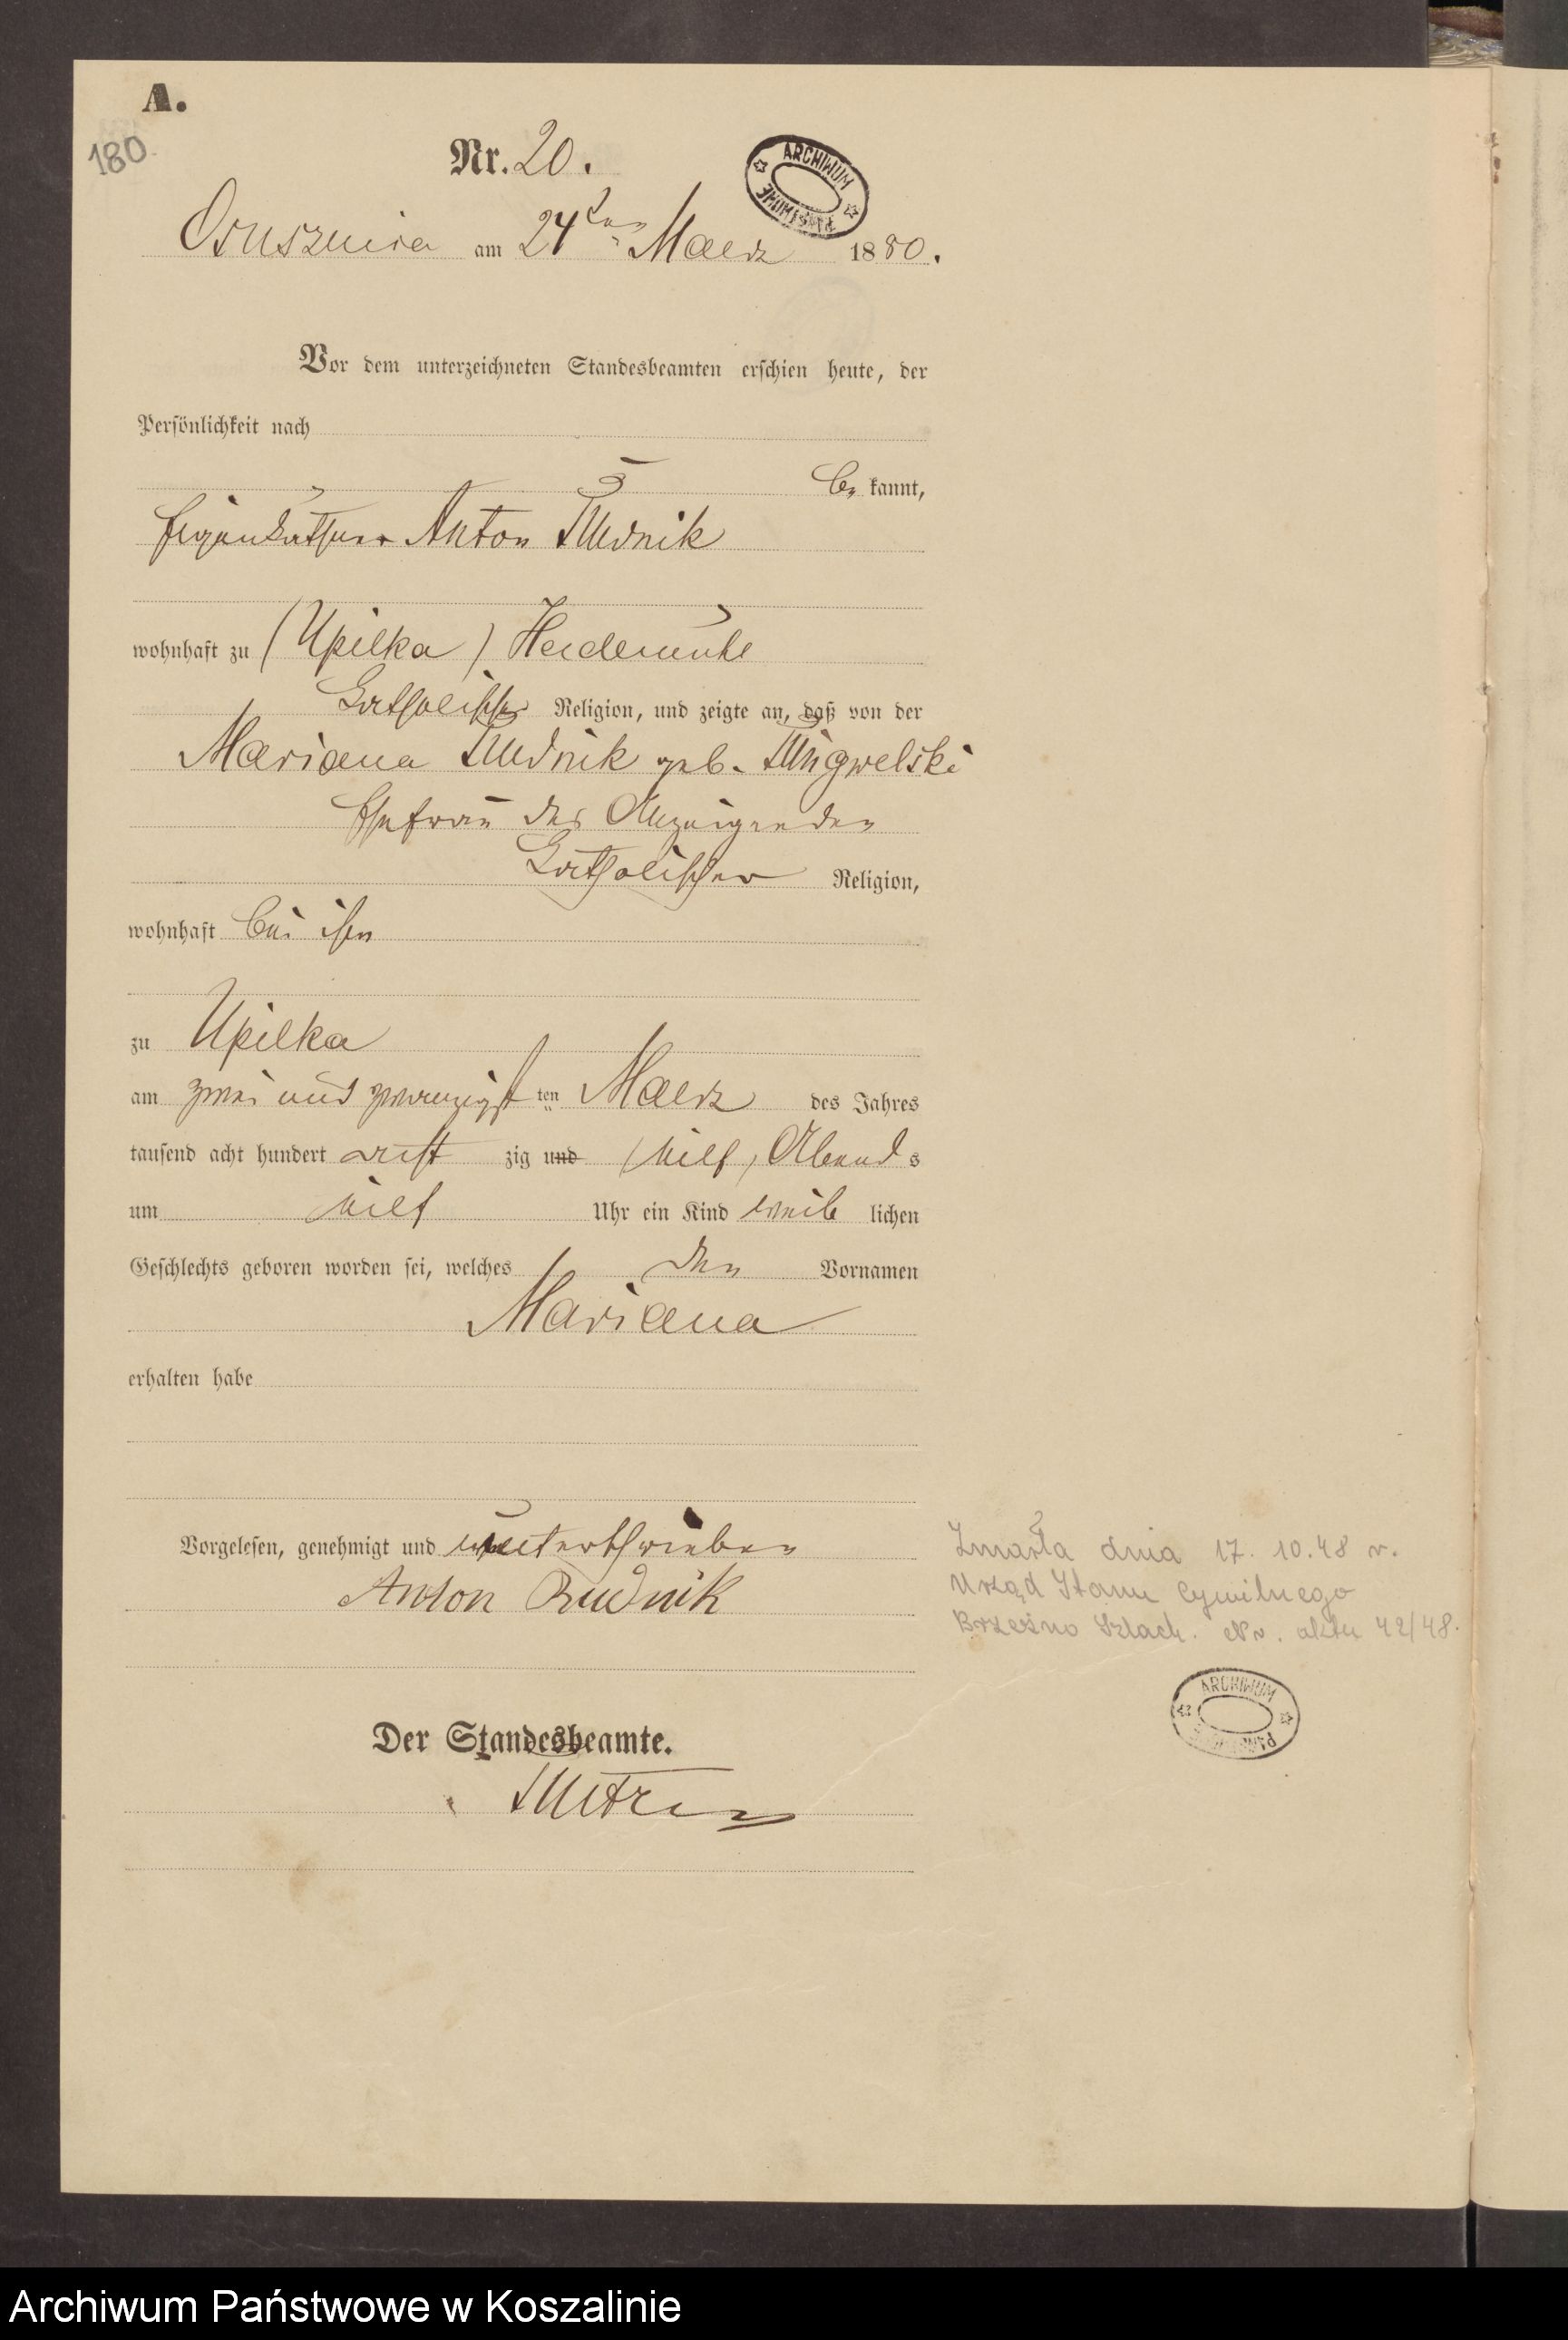 A.
180
Nr. 20.
ARCHIWUM PAŃSTWOWE
Osusznica am 24ten Maerz 1880.
Vor dem unterzeichneten Standesbeamten erschien heute, der
Persönlichkeit nach
be kannt,
Eigenkäthner Anton Rudnik
wohnhaft zu (Upilka) Heidemühl
katholischer Religion, und zeigte an, daß von der
Mariana Rudnik geb. Ringwelski
Ehefrau des Anzeigenden
katholischer Religion,
wohnhaft bei ihm
zu Upilka
am zwei und zwanzigst ten Maerz des Jahres
tausend acht hundert acht zig und Abends
um Uhr ein Kind weib lichen
Geschlechts geboren worden sei, welches den Vornamen
Mariana
erhalten habe
Vorgelesen, genehmigt und unterschrieben
Anton Rudnik
Der Standesbeamte.
Zmarła dnia 17. 10. 48 r.
Urząd Stanu Cywilnego
Brzeźno Szlach. Nr. aktu 42/48.
ARCHIWUM PAŃSTWOWE
Archiwum Państwowe w Koszalinie